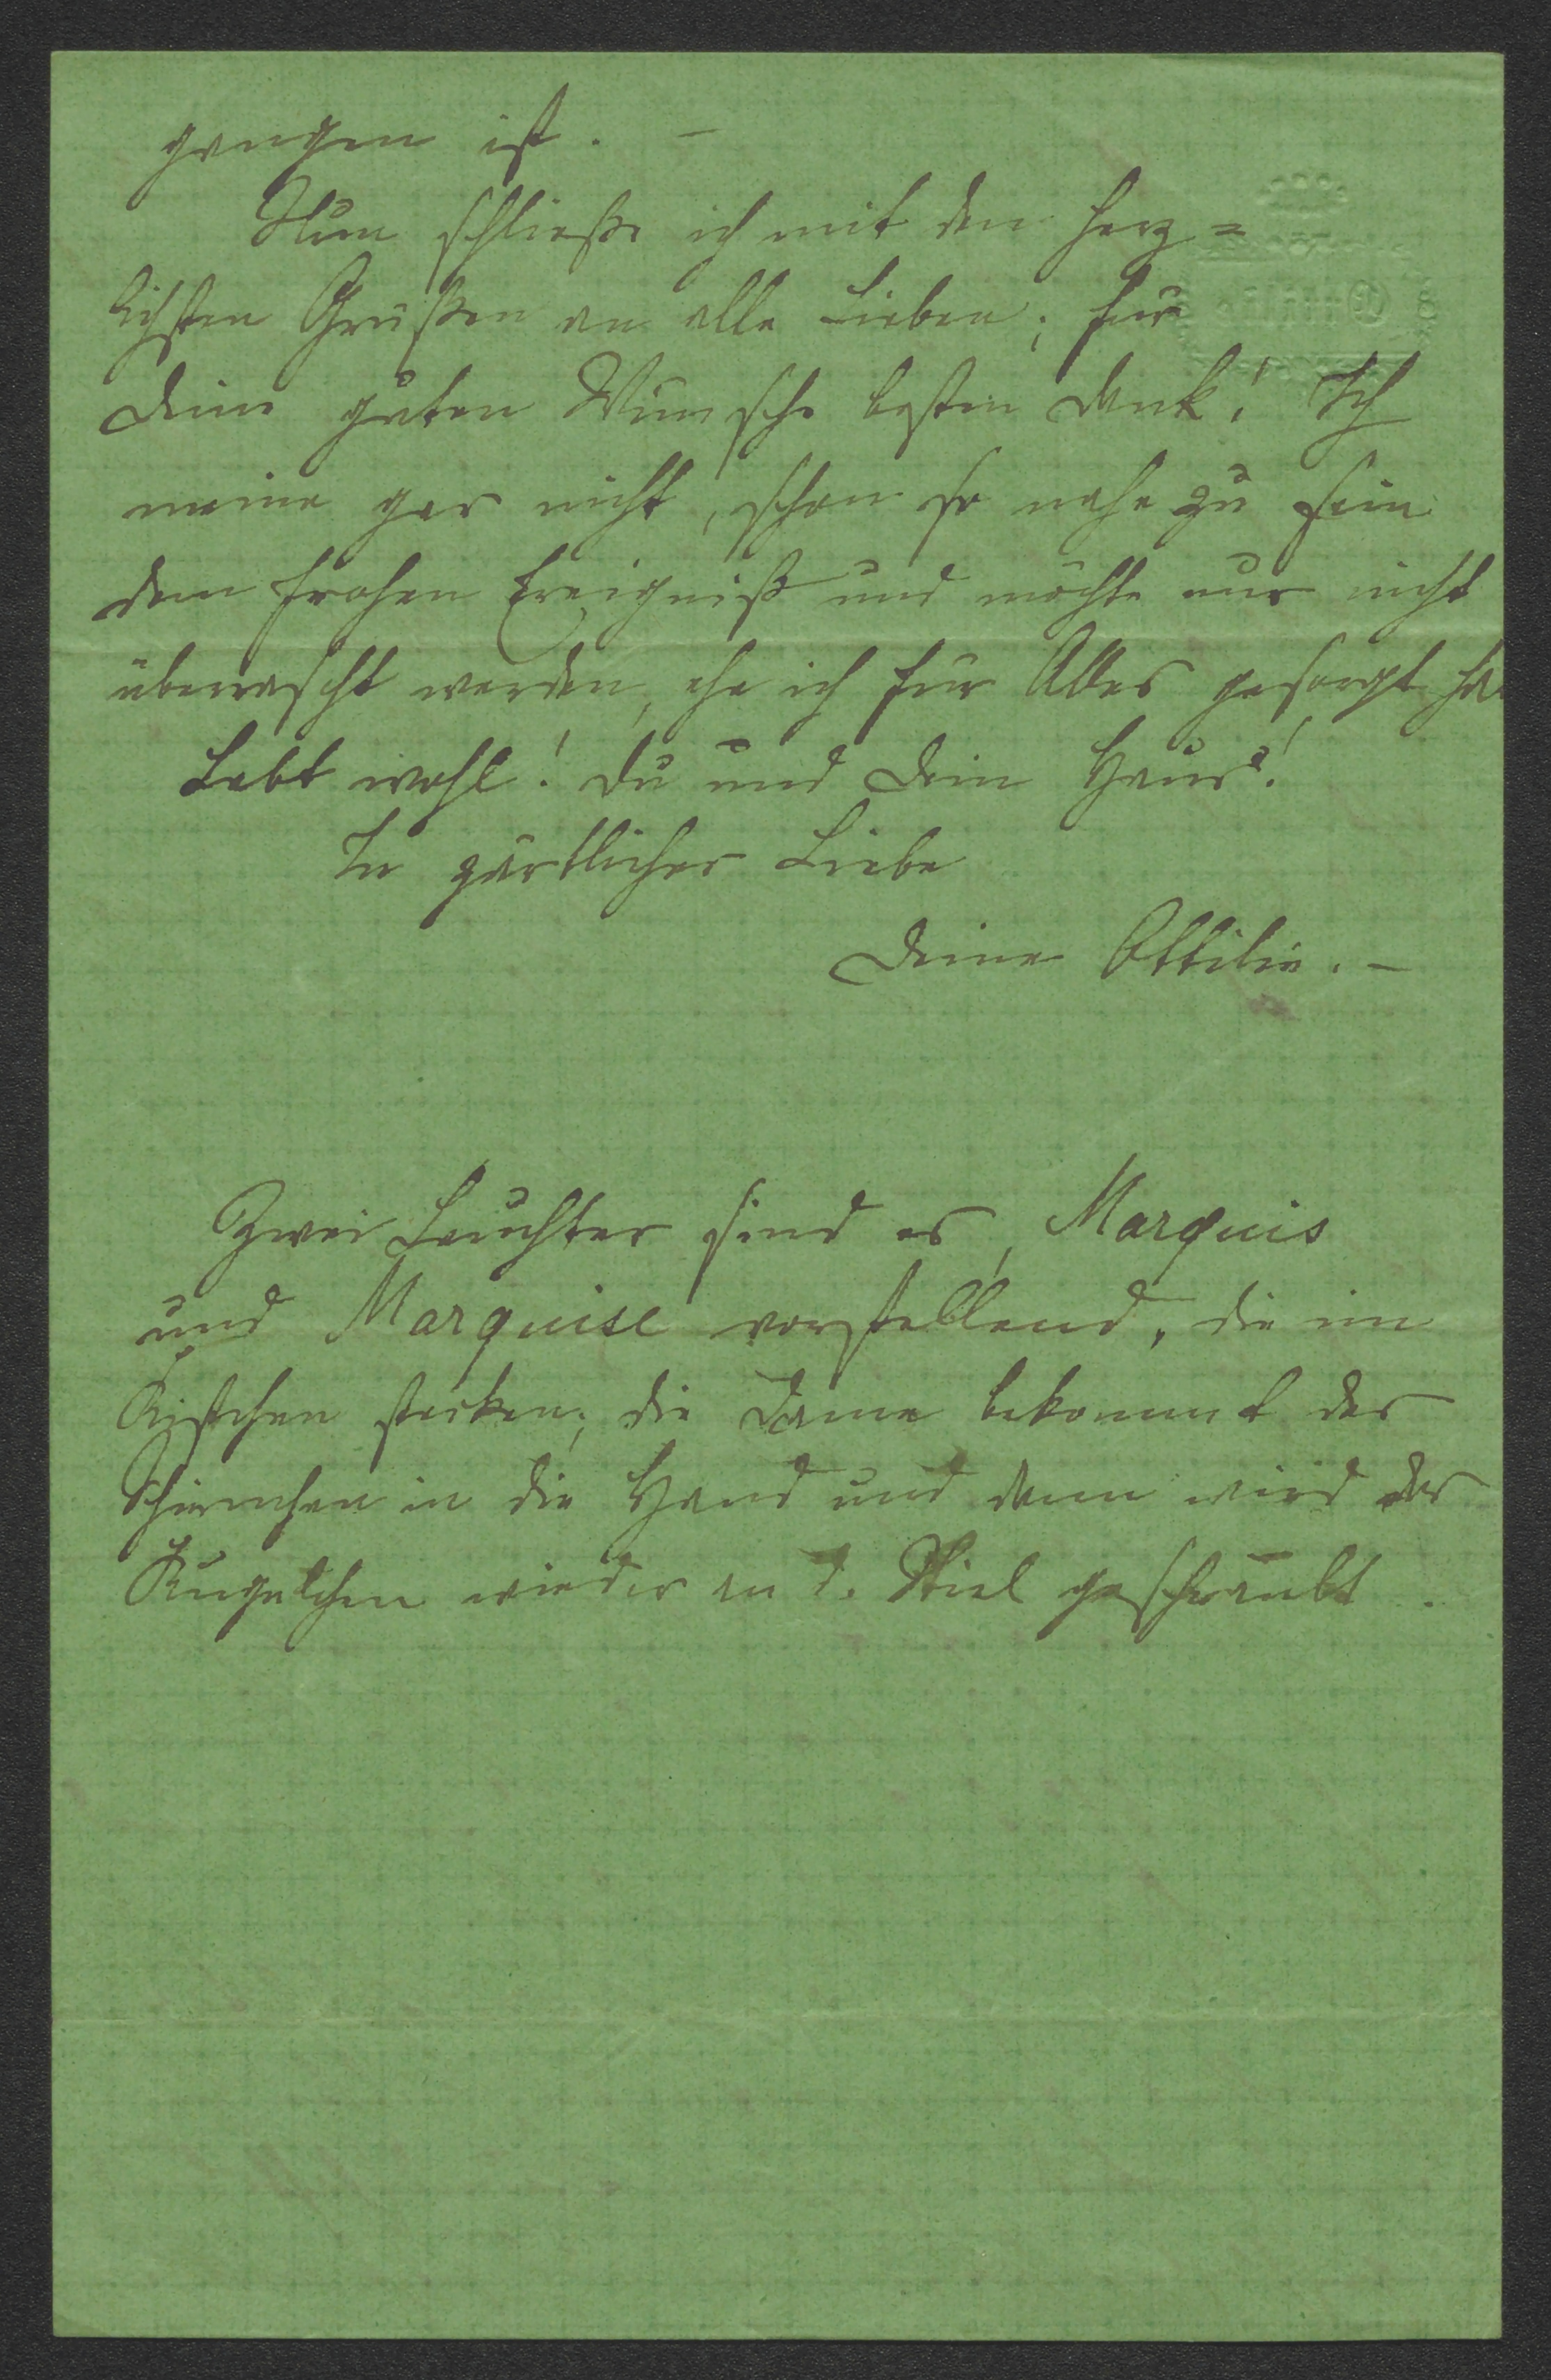 gangen ist. –
Nun schließe ich mit den herz=
lichsten Grüßen an alle Lieben; für
Deine guten Wünsche besten Dank! Ich
meine gar nicht, schon so nahe zu sein
dem frohen Ereigniß und möchte nur nicht
überrascht werden, ehe ich für Alles gesorgt ha
Lebt wohl! Du und Dein Haus!
In zärtlicher Liebe
Deine Ottilie. –
Zwei Leuchter sind es, Marquis
und Marquise vorstellend, die im
Kistchen stecken; die Dame bekommt das
Schirmchen in die Hand und dann wird das
Kügelchen wieder an d. Stiel geschraubt.